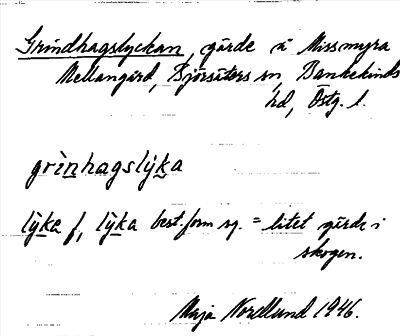 Grindhagslyckan, gärde å Missmyra
Mellangård, Björsäters sn, Bankekinds
hd, Östg. l.
grìnhagslýka
lýka f, lýka best. form sg. = litet gärde i
skogen.
Maja Norellund 1946.